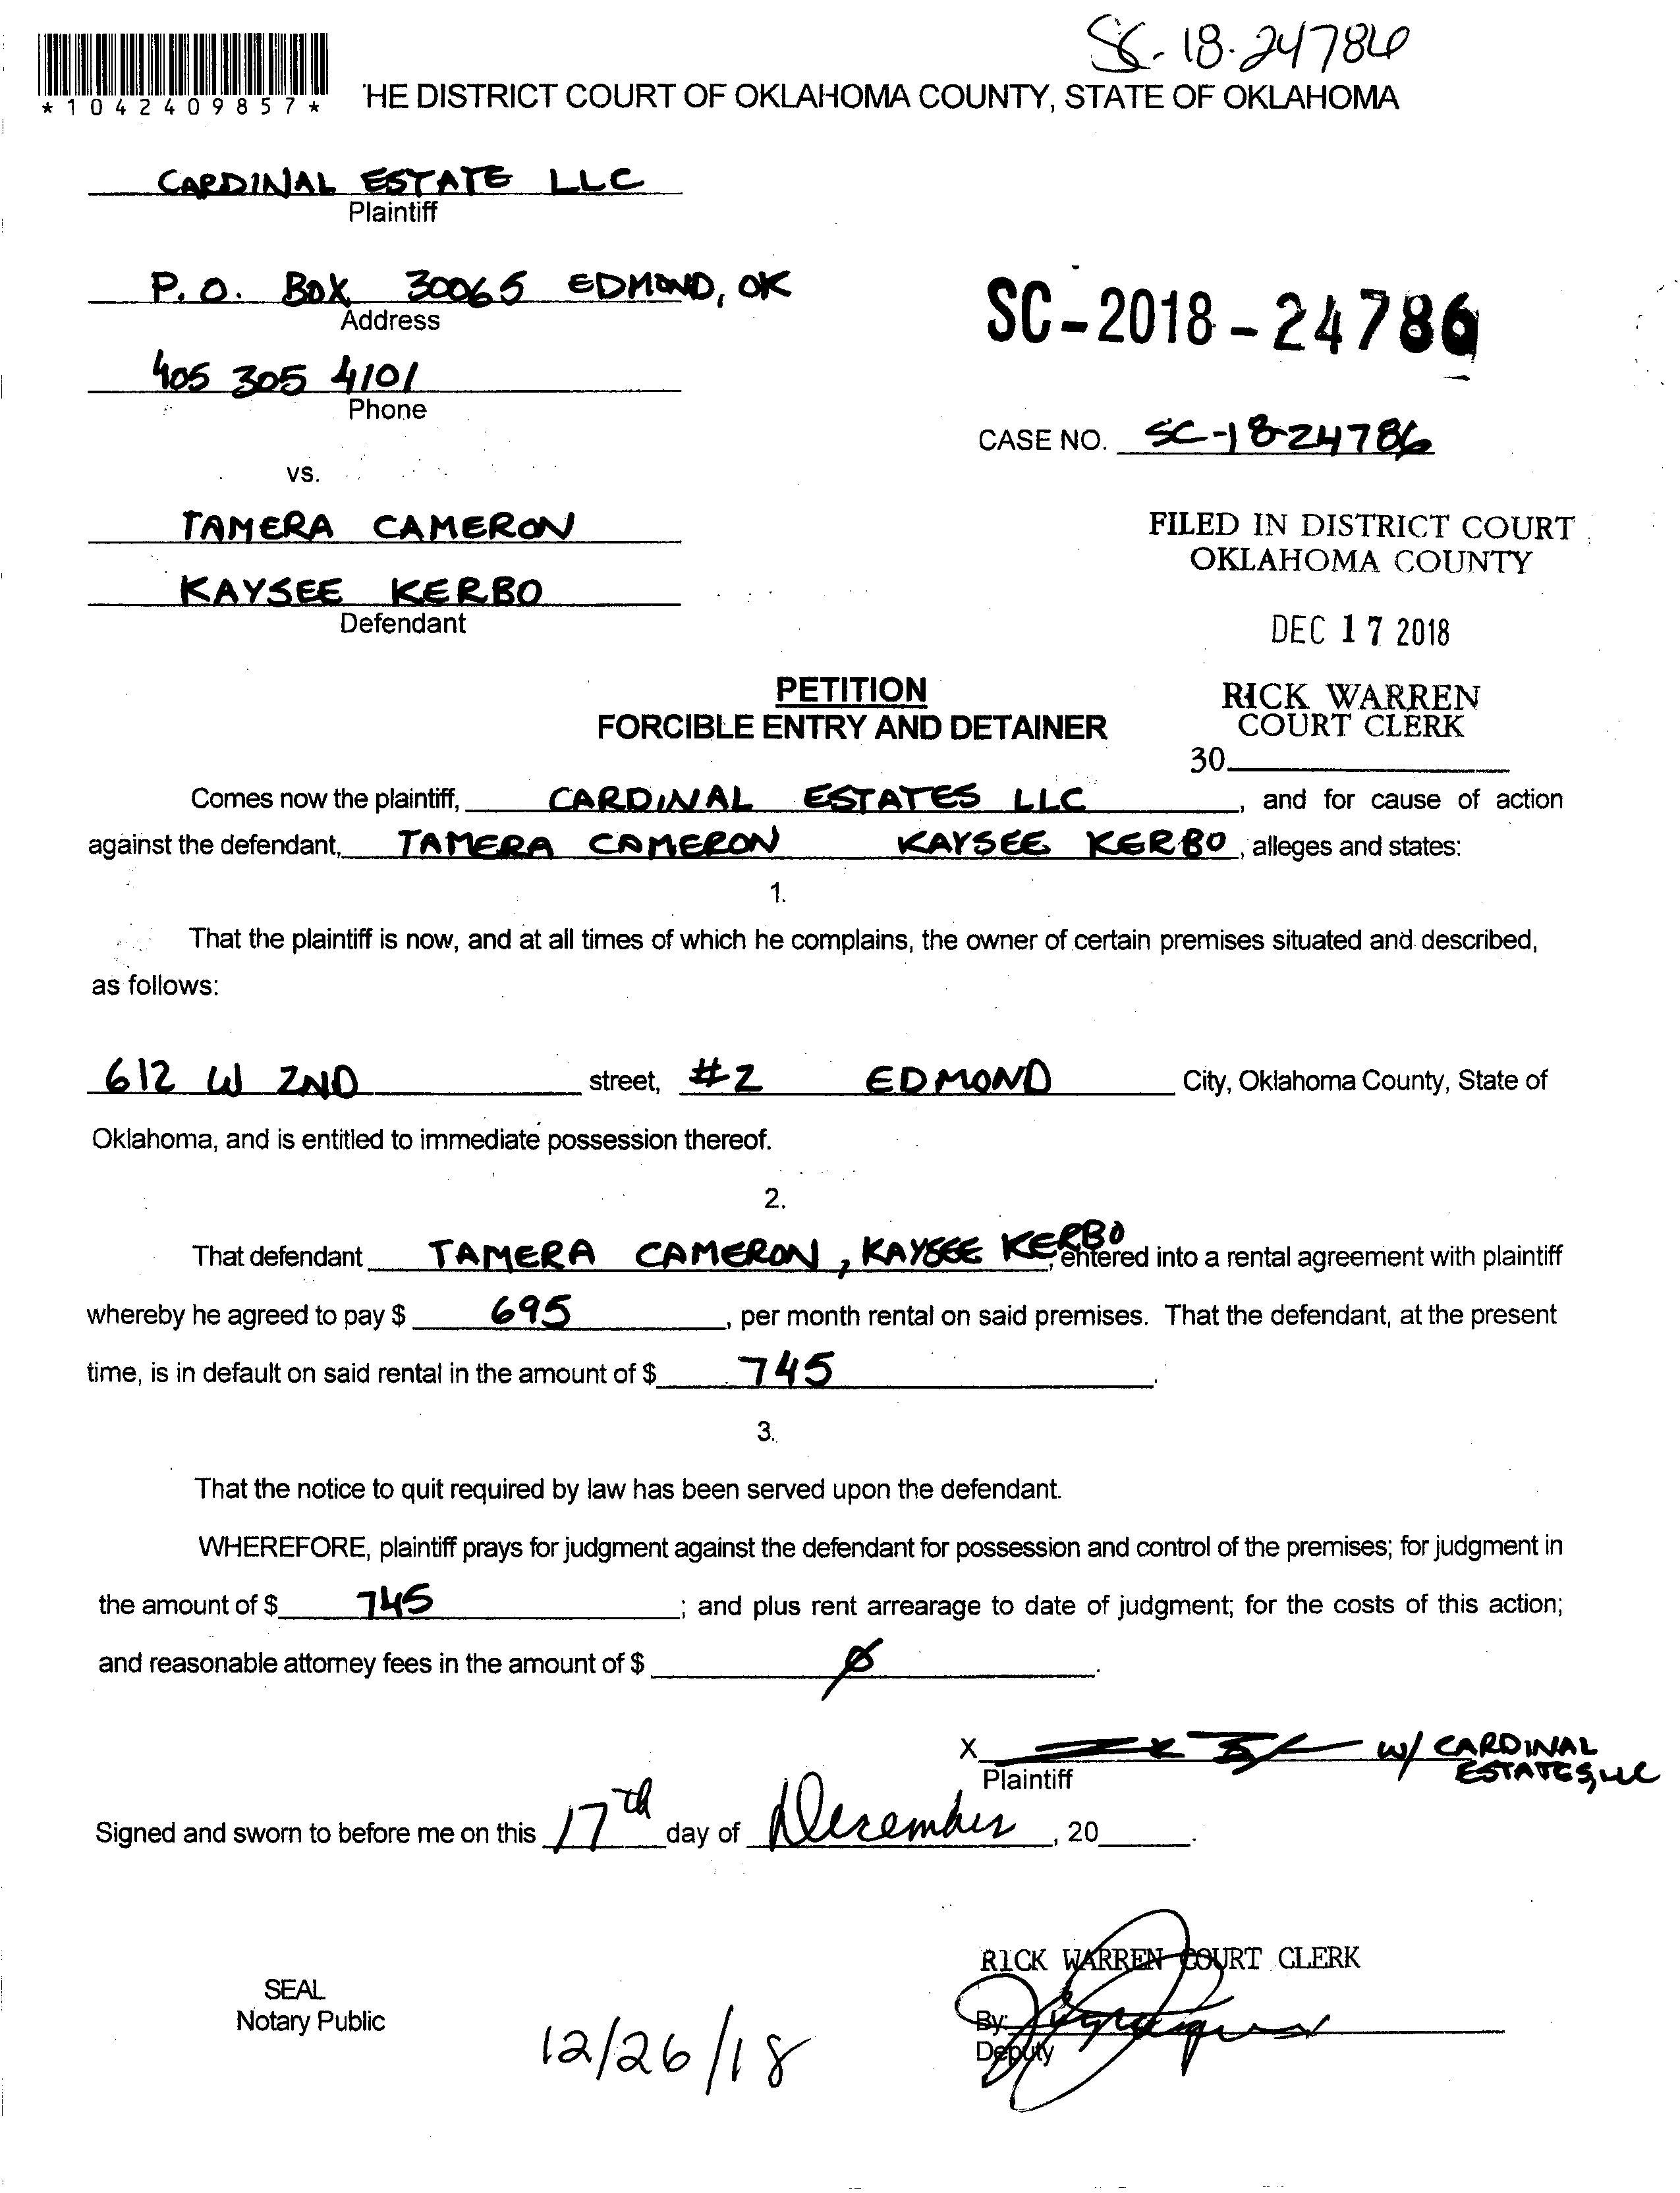 SC-18-24786
*1042409857*
'HE DISTRICT COURT OF OKLAHOMA COUNTY, STATE OF OKLAHOMA
CARDINAL ESTATE LLC
Plaintiff
P.O. BOX 30065 EDMOND, OK
Address
SC-2018-24786
405 305 4101
Phone
CASE NO. SC-18-24786
vs.
TAMERA CAMERON
FILED IN DISTRICT COURT
OKLAHOMA COUNTY
KAYSEE KERBO
Defendant
DEC 17 2018
PETITION
FORCIBLE ENTRY AND DETAINER
RICK WARREN
COURT CLERK
30
Comes now the plaintiff, CARDINAL ESTATES LLC, and for cause of action
against the defendant, TAMERA CAMERON KAYSEE KERBO, alleges and states:
1.
That the plaintiff is now, and at all times of which he complains, the owner of certain premises situated and described,
as follows:
612 W 2ND street, #2 EDMOND City, Oklahoma County, State of
Oklahoma, and is entitled to immediate possession thereof.
2.
That defendant TAMERA CAMERON, KAYSEE KERBO, entered into a rental agreement with plaintiff
whereby he agreed to pay $ 695, per month rental on said premises. That the defendant, at the present
time, is in default on said rental in the amount of $ 745.
3.
That the notice to quit required by law has been served upon the defendant.
WHEREFORE, plaintiff prays for judgment against the defendant for possession and control of the premises; for judgment in
the amount of $ 745; and plus rent arrearage to date of judgment; for the costs of this action;
and reasonable attorney fees in the amount of $ Ø.
X w/ CARDINAL
ESTATES, LLC
Plaintiff
Signed and sworn to before me on this 17th day of December, 20 .
RICK WARREN COURT CLERK
SEAL
Notary Public
By:
Deputy
12/26/18